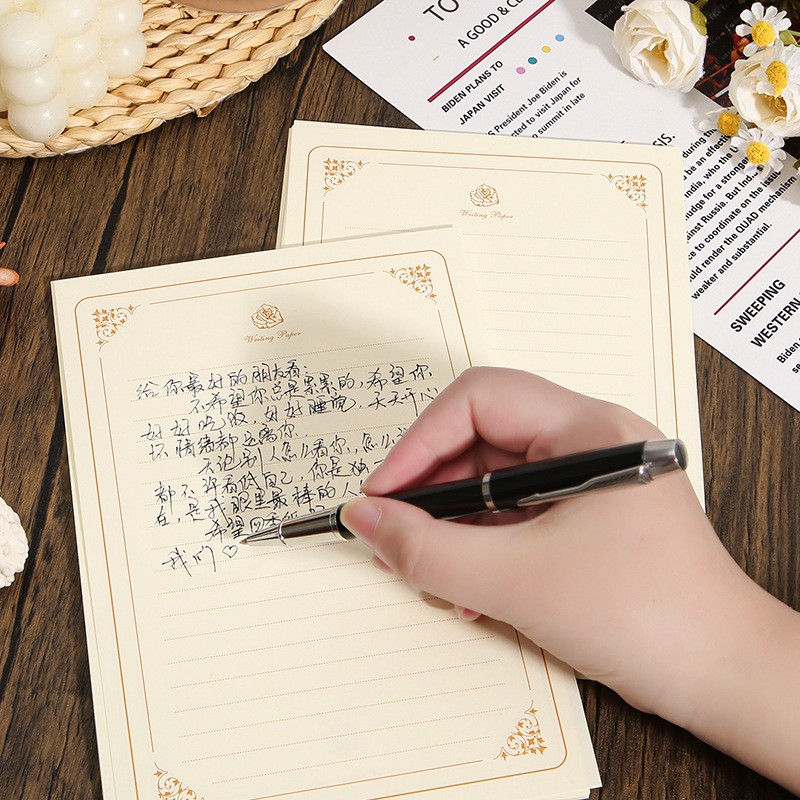 Writing Paper
给你最好的朋友看:
不希望你总是累累的,希望你
好好吃饭,好好睡觉,天天开心
坏情绪都远离你.
不论别人怎么看你,怎么
都不许看低自己,你是独一
在,是我眼里最棒的人
希望
我们♡
Writing Paper
TO
A GOOD & C
BIDEN PLANS TO
JAPAN VISIT
S President Joe Biden is
cted to visit Japan for
summit in late
SIS.
during the
be an effec
India, who the U
nudge for a stronger
ainst Russia. But Ind
ce to coordinate on the is
uld render the QUAD mechanism
weaker and substantial.
SWEEPING
WESTERN
Biden
se